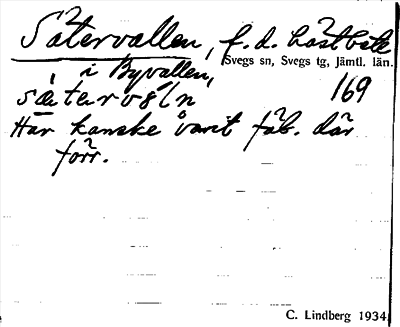 Sätervallen, f.d. hästbete
Svegs sn, Svegs tg, Jämtl. län.
i Byvallen,
169
Har kanske varit fäb. där
förr.
C. Lindberg 1934